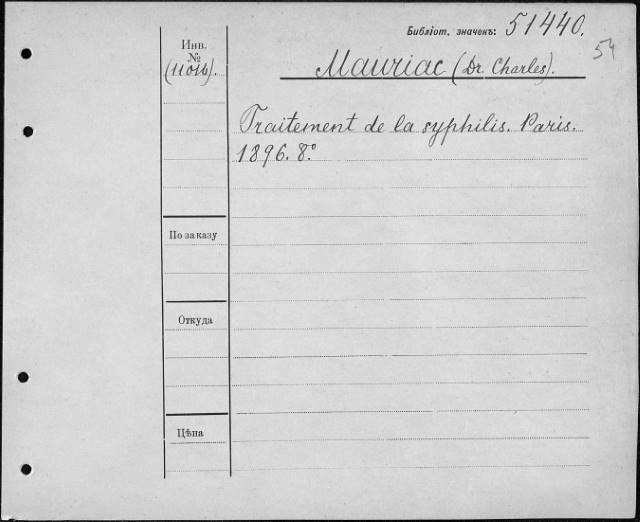 Библіот. значекъ: 51440.
54
Инв.
№
(11016).
Mauriac (Dr. Charles).
Traitement de la syphilis. Paris.
1896. 8°
По заказу
Откуда
Цѣна